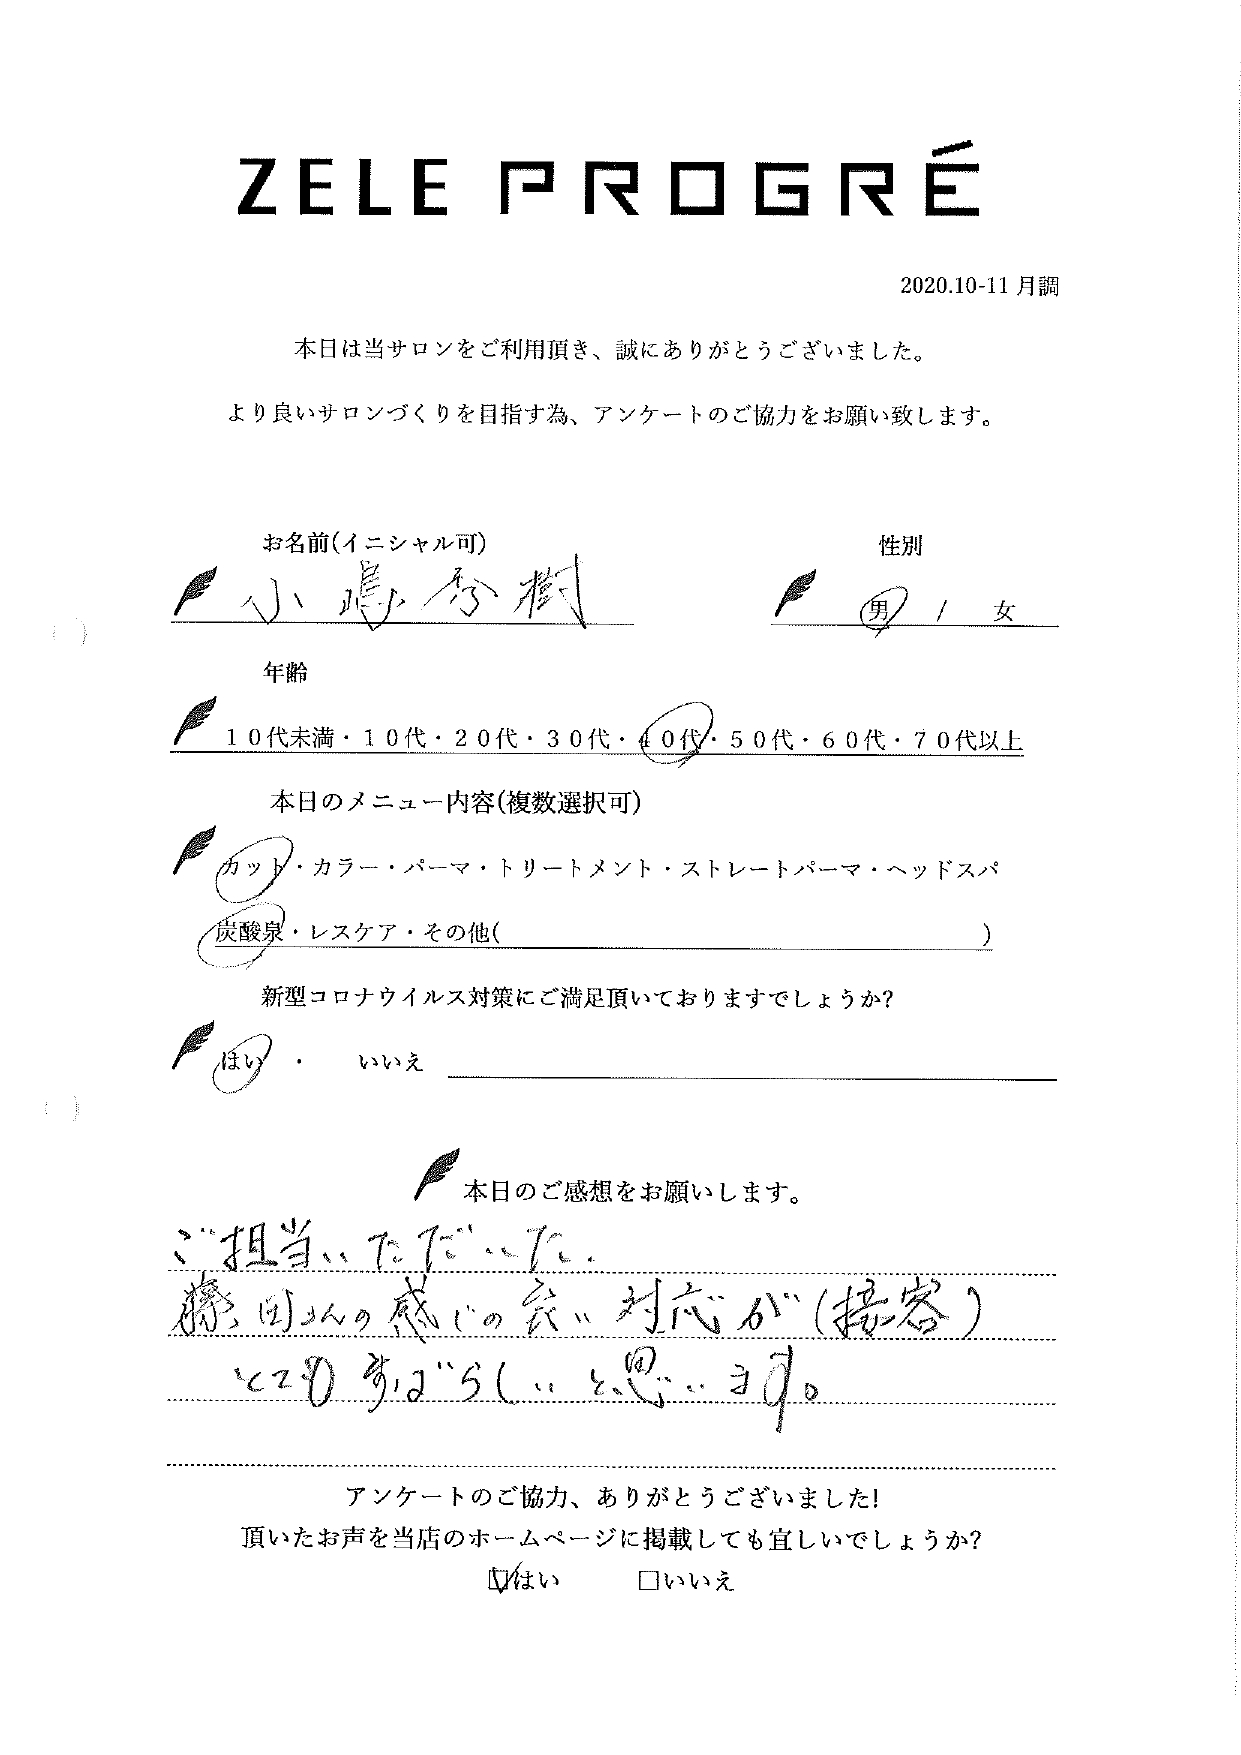 ZELE PROGRÉ
2020.10-11 月調
本日は当サロンをご利用頂き、誠にありがとうございました。
より良いサロンづくりを目指す為、アンケートのご協力をお願い致します。
お名前(イニシャル可) 性別
小嶋秀樹 男 / 女
年齢
１０代未満・１０代・２０代・３０代・４０代・５０代・６０代・７０代以上
本日のメニュー内容(複数選択可)
カット・カラー・パーマ・トリートメント・ストレートパーマ・ヘッドスパ
炭酸泉・レスケア・その他( )
新型コロナウイルス対策にご満足頂いておりますでしょうか?
はい ・ いいえ
本日のご感想をお願いします。
ご担当いただいた.
藤田さんの感じの良い対応が(接客)
とてもすばらしいと思います。
アンケートのご協力、ありがとうございました!
頂いたお声を当店のホームページに掲載しても宜しいでしょうか?
☑はい □いいえ